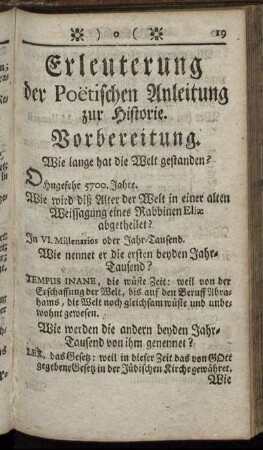 )o( 19
Erleuterung
der Poëtischen Anleitung
zur Historie.
Vorbereitung.
Wie lange hat die Welt gestanden?
Ohngefehr 5700. Jahre.
Wie wird diß Alter der Welt in einer alten
Weissagung eines Rabbinen Eliæ
abgetheilet?
In VI. Millenarios oder Jahr-Tausend.
Wie nennet er die ersten beyden Jahr-
Tausend?
TEMPUS INANE, die wüste Zeit: weil von der
Erschaffung der Welt, bis auf den Beruff Abra-
hams, die Welt noch gleichsam wüste und unbe-
wohnt gewesen.
Wie werden die andern beyden Jahr-
Tausend von ihm genennet?
LEX, das Gesetz: weil in dieser Zeit das von GOtt
gegebene Gesetz in der Jüdischen Kirche gewähret.
Wie